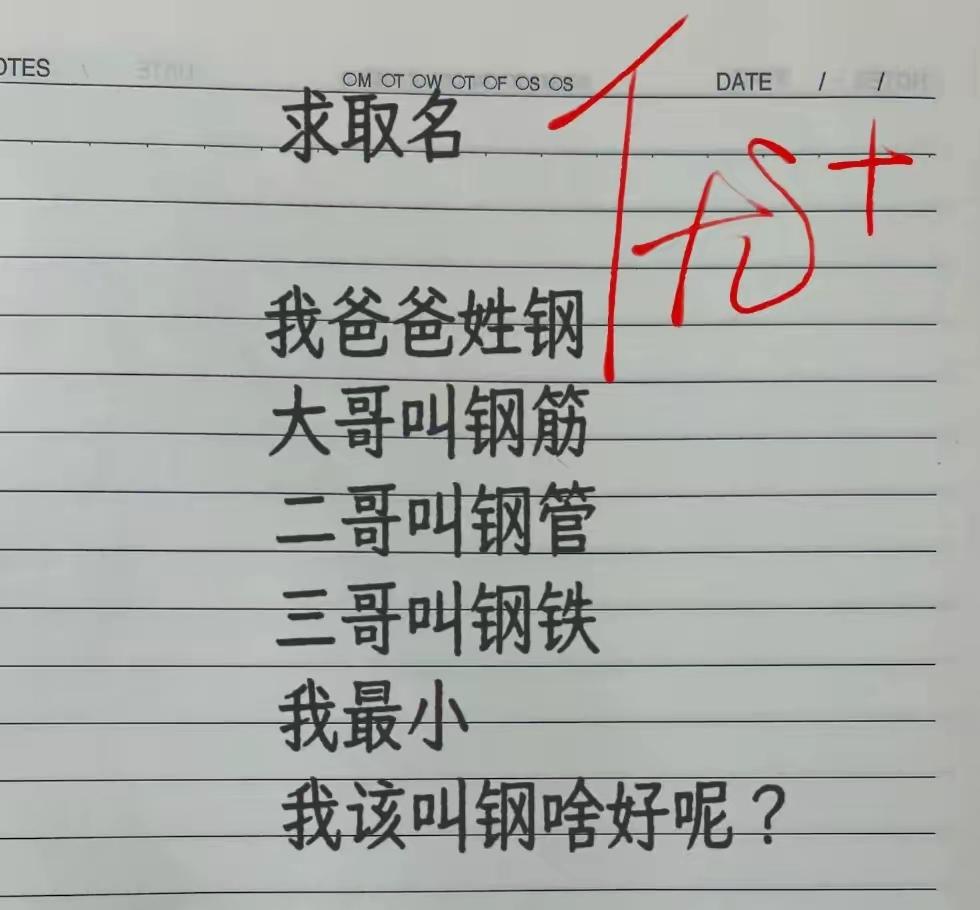 OTES OM OT OW OT OF OS OS DATE / /
求取名
我爸爸姓钢
大哥叫钢筋
二哥叫钢管
三哥叫钢铁
我最小
我该叫钢啥好呢？